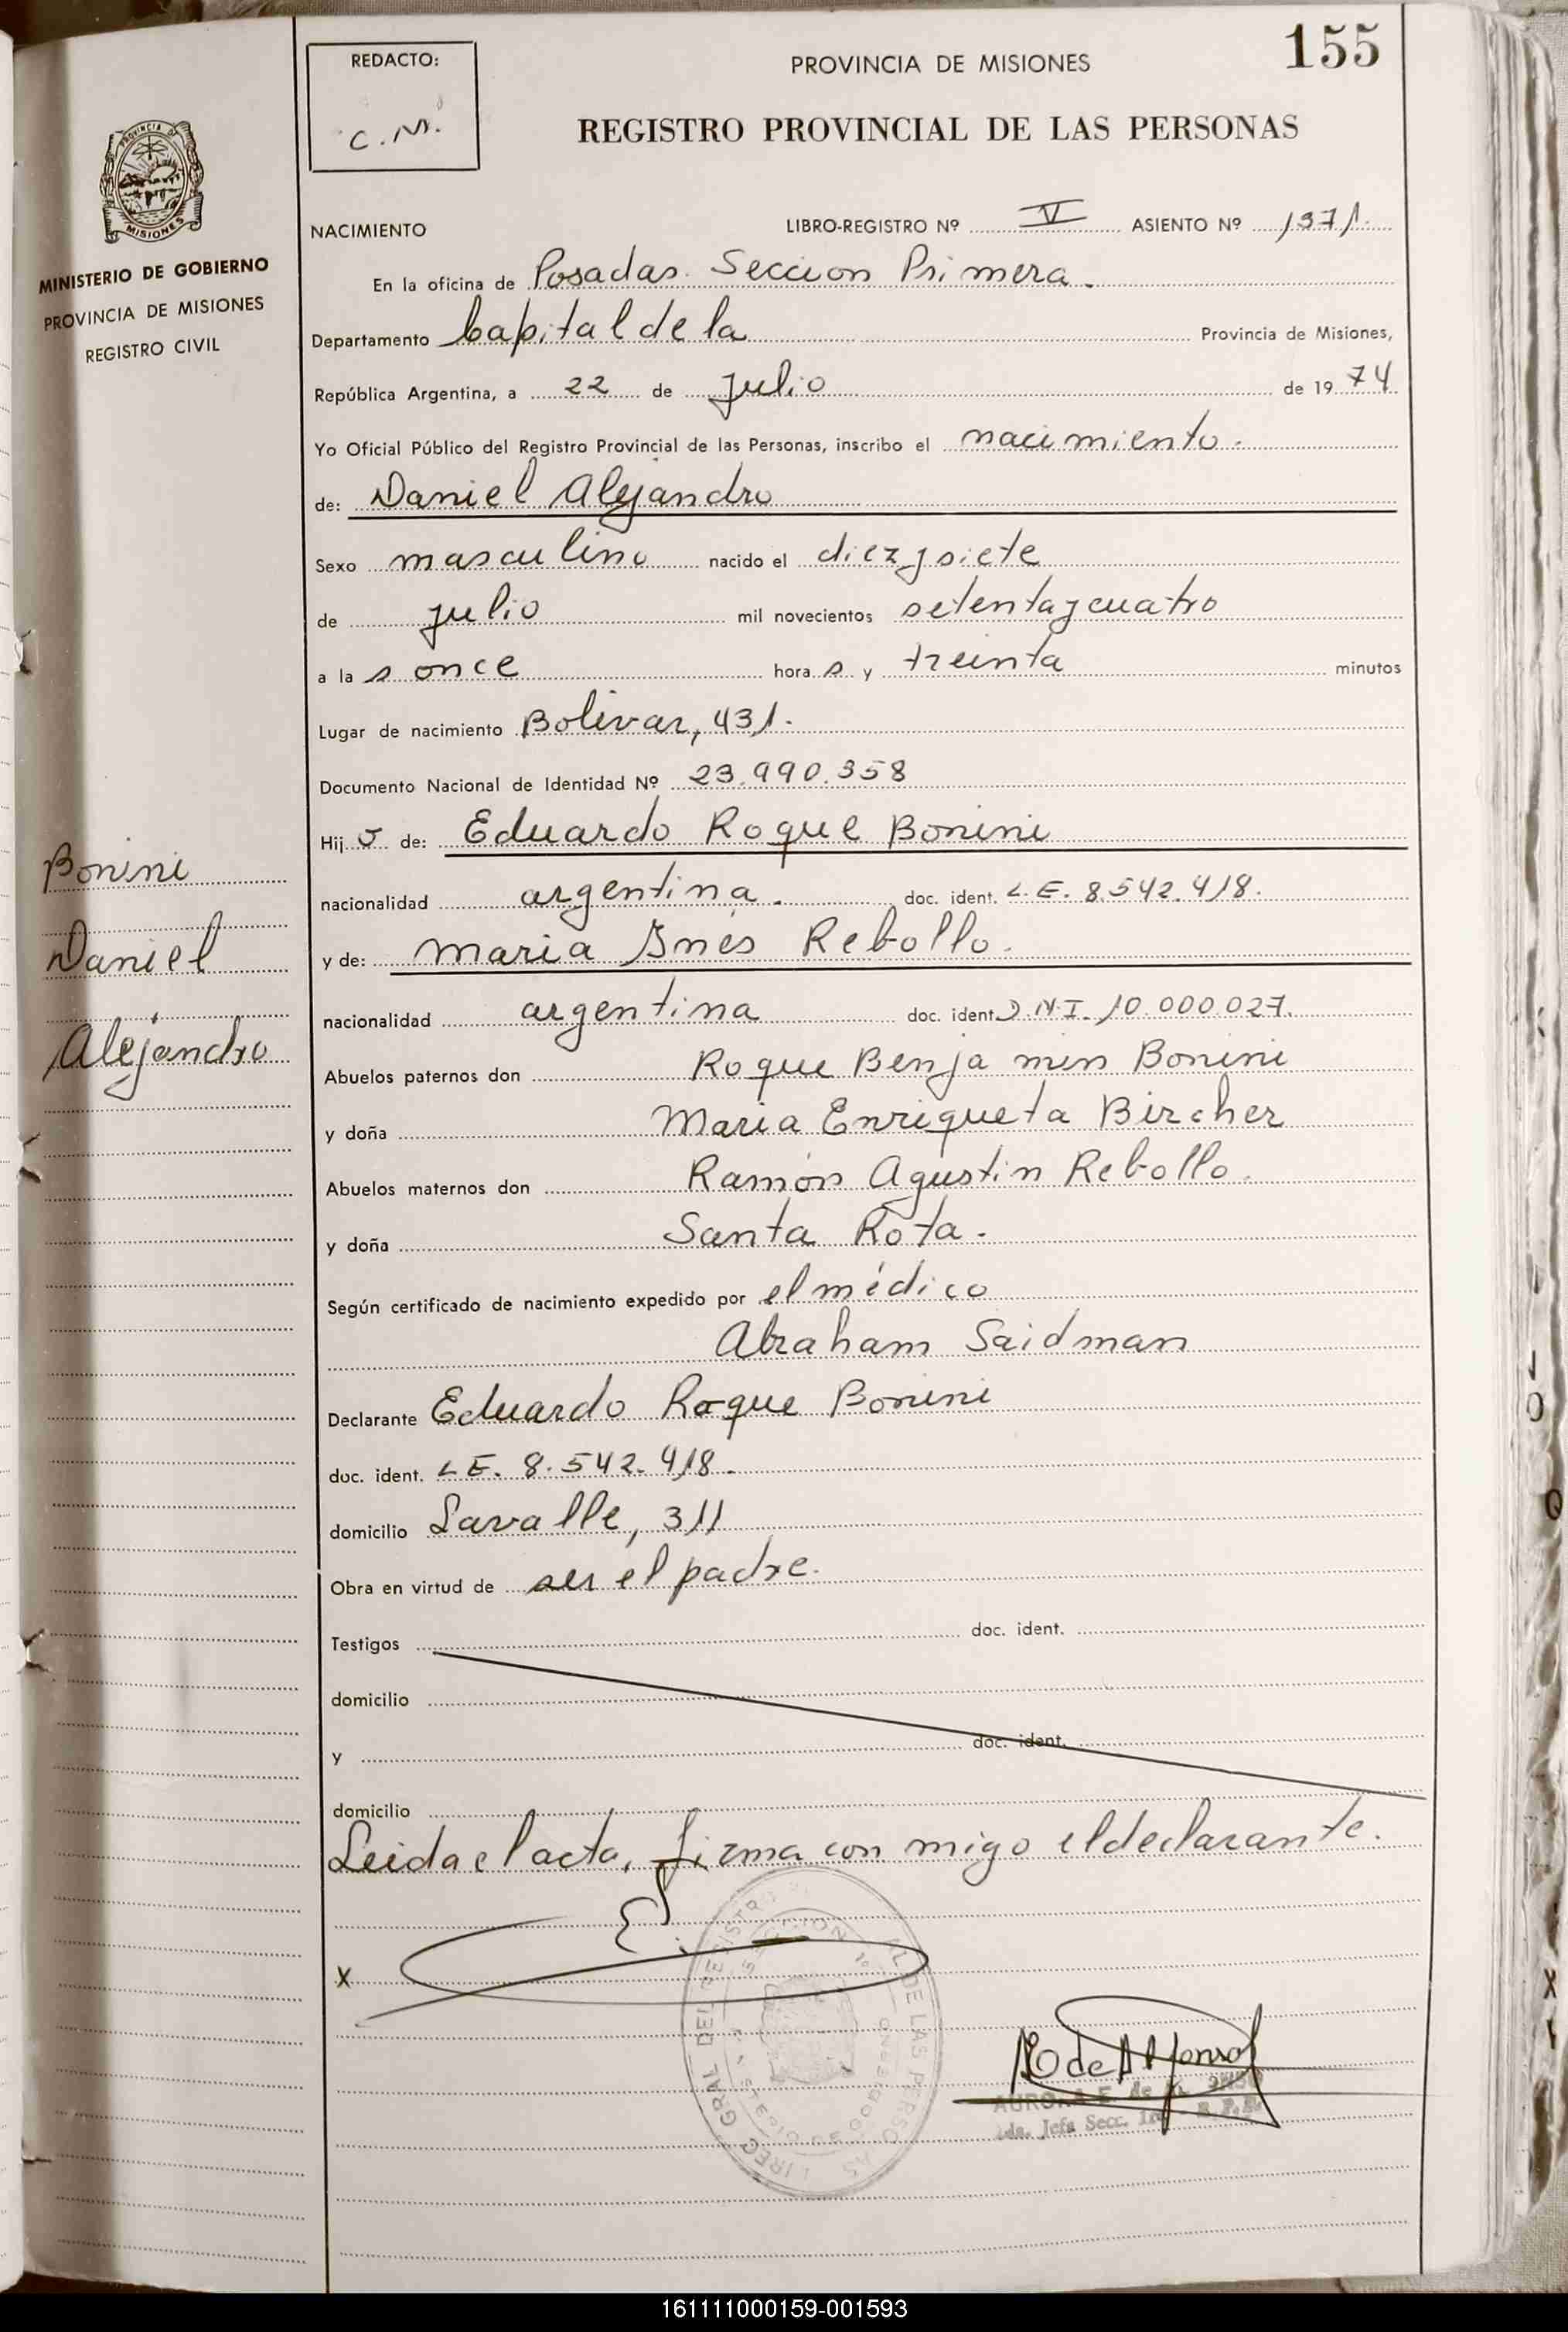 155
REDACTO:
C.M.
PROVINCIA DE MISIONES
REGISTRO PROVINCIAL DE LAS PERSONAS
PROVINCIA DE
MISIONES
MINISTERIO DE GOBIERNO
PROVINCIA DE MISIONES
REGISTRO CIVIL
NACIMIENTO LIBRO-REGISTRO Nº V ASIENTO Nº 1371.
En la oficina de Posadas. Seccion Primera.
Departamento Capital de la Provincia de Misiones,
República Argentina, a 22 de Julio de 1974
Yo Oficial Público del Registro Provincial de las Personas, inscribo el nacimiento.
de: Daniel Alejandro
Sexo masculino nacido el diez y siete
de julio mil novecientos setenta y cuatro
a la s once hora s y treinta minutos
Lugar de nacimiento Bolivar, 431.
Documento Nacional de Identidad Nº 23.990.358
Hij o de: Eduardo Roque Bonini
nacionalidad argentina. doc. ident. L.E. 8.542.418.
y de: Maria Inés Rebollo.
nacionalidad argentina doc. ident. D.N.I. 10.000.027.
Abuelos paternos don Roque Benjamin Bonini
y doña Maria Enriqueta Bircher
Abuelos maternos don Ramón Agustin Rebollo.
y doña Santa Rota.
Según certificado de nacimiento expedido por el médico
Abraham Saidman
Declarante Eduardo Roque Bonini
doc. ident. L.E. 8.542.418.
domicilio Lavalle, 311
Obra en virtud de ser el padre.
Testigos doc. ident.
domicilio
y doc. ident.
domicilio
Leida el acta, firma con migo el declarante.
X
Bonini
Daniel
Alejandro
161111000159-001593